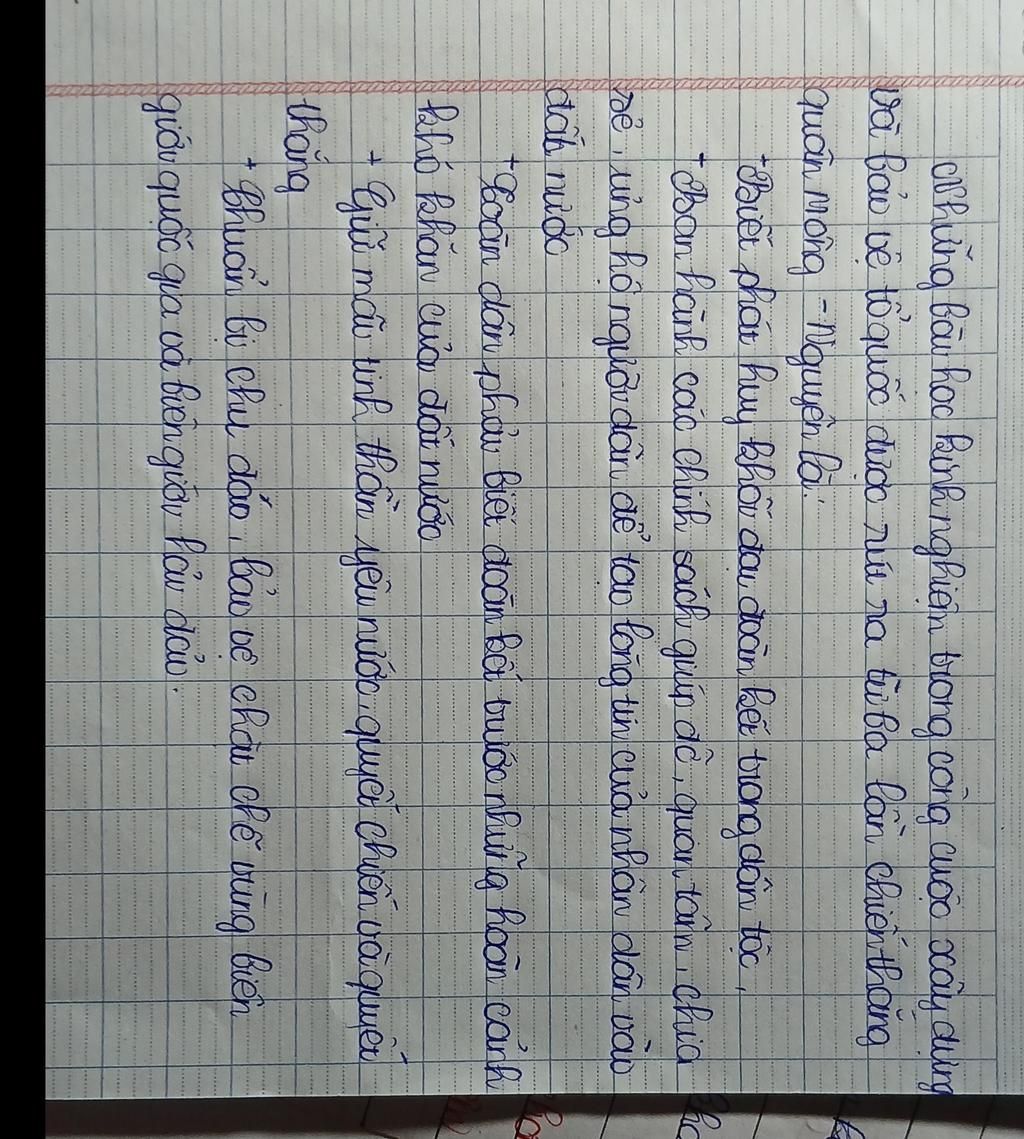 Những bài học kinh nghiệm trong công cuộc xây dựng
và bảo vệ tổ quốc được rút ra từ ba lần chiến thắng
quân Mông - Nguyên là:
+ Biết phát huy khối đại đoàn kết trong dân tộc,
+ Ban hành các chính sách giúp đỡ, quan tâm, chia
sẻ, ủng hộ người dân để tạo lòng tin của nhân dân vào
đất nước
+ Toàn dân phải biết đoàn kết trước những hoàn cảnh
khó khăn của đất nước
+ Giữ mãi tinh thần yêu nước, quyết chiến và quyết
thắng
+ Chuẩn bị chu đáo, bảo vệ chặt chẽ vùng biên
giới quốc gia và biên giới hải đảo.